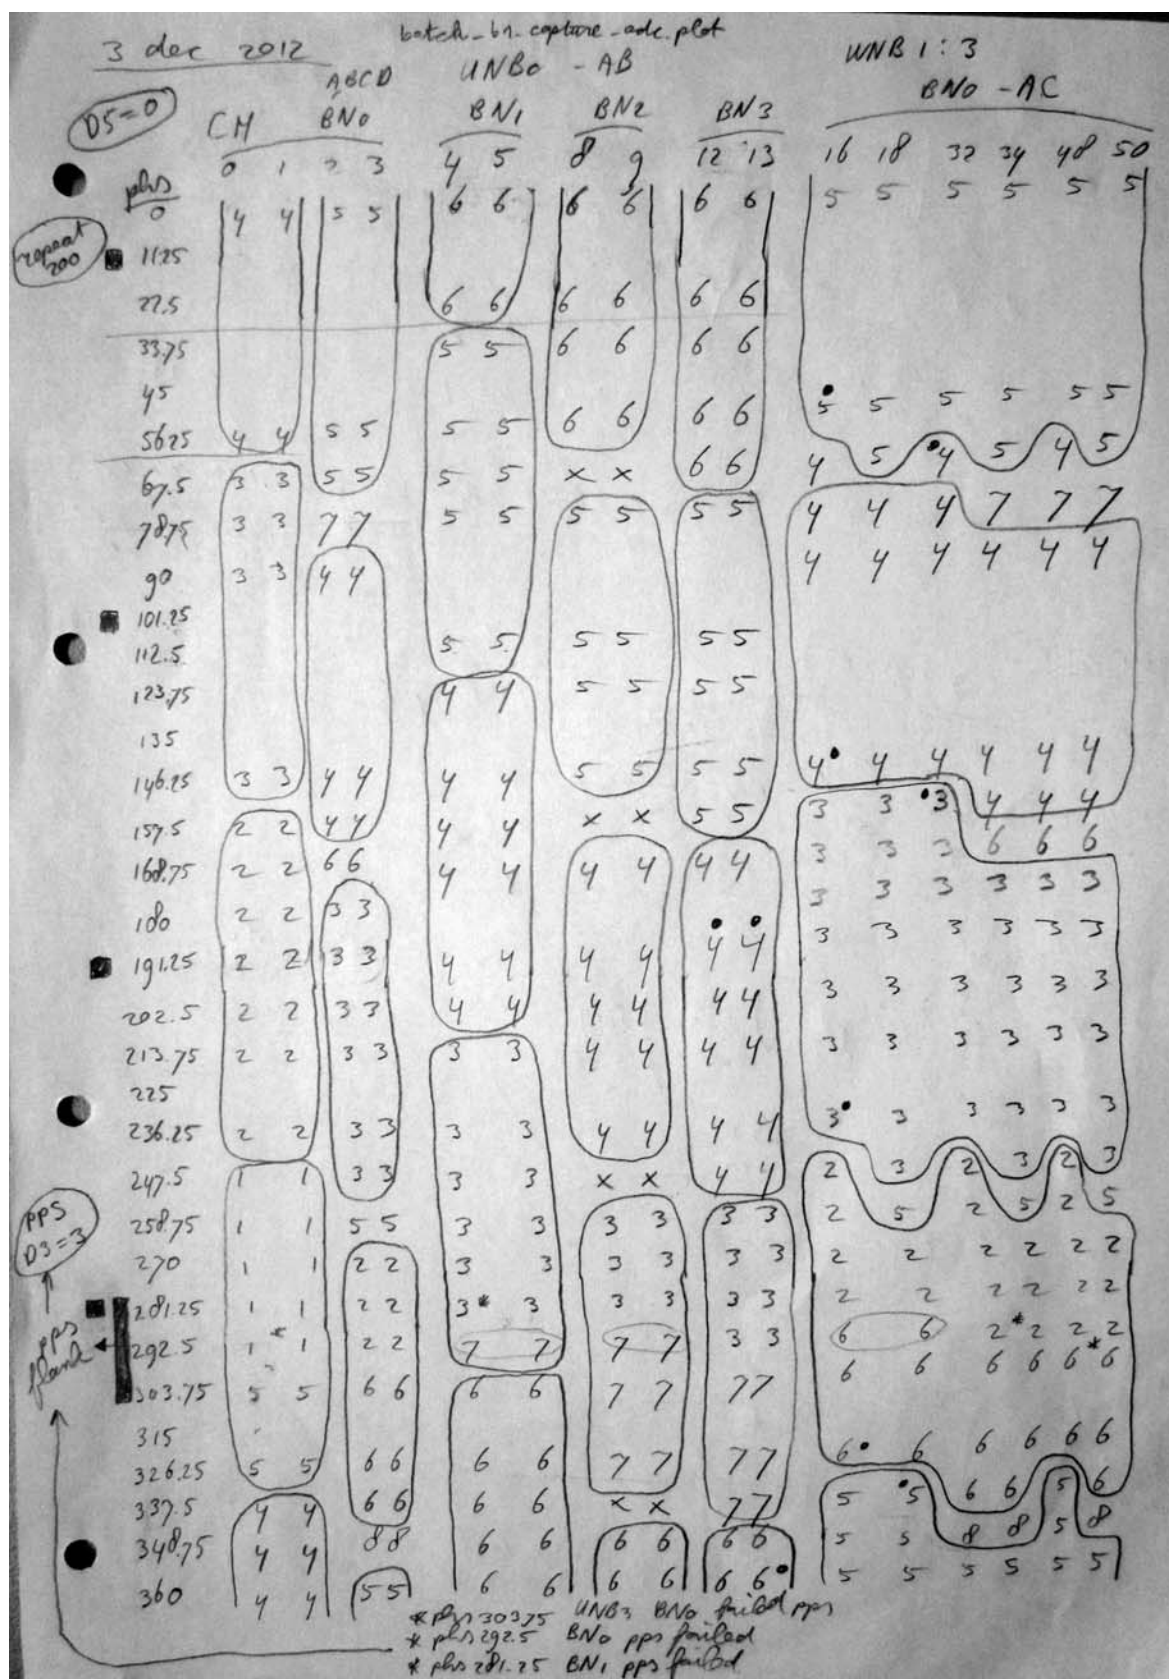 3 dec 2012 batch_bn_capture_adc.plot
ABCD UNB0 - AB UNB 1 : 3
D5=0 CH BN0 BN1 BN2 BN3 BN0 - AC
0 1 2 3 4 5 8 9 12 13 16 18 32 34 48 50
phs
0 4 4 5 5 6 6 6 6 6 6 5 5 5 5 5 5
repeat 200
11.25
22.5 6 6 6 6 6 6
33.75 5 5 6 6 6 6
45 5 5 5 5 5 5
56.25 4 4 5 5 5 5 6 6 6 6 4 5 4 5 4 5
67.5 3 3 5 5 5 5 x x 6 6 4 4 4 7 7 7
78.75 3 3 7 7 5 5 5 5 5 5 4 4 4 4 4 4
90 3 3 4 4
101.25
112.5 5 5 5 5 5 5
123.75 4 4 5 5 5 5
135
146.25 3 3 4 4 4 4 5 5 5 5 4 4 4 4 4 4
157.5 2 2 4 4 4 4 x x 5 5 3 3 3 4 4 4
168.75 2 2 6 6 4 4 4 4 4 4 3 3 3 6 6 6
180 2 2 3 3 3 3 3 3 3 3
191.25 2 2 3 3 4 4 4 4 4 4 3 3 3 3 3 3
202.5 2 2 3 3 4 4 4 4 4 4 3 3 3 3 3 3
213.75 2 2 3 3 3 3 4 4 4 4 3 3 3 3 3 3
225
236.25 2 2 3 3 3 3 4 4 4 4 3 3 3 3 3 3
247.5 1 1 3 3 3 3 x x 4 4 2 3 2 3 2 3
258.75 1 1 5 5 3 3 3 3 3 3 2 5 2 5 2 5
PPS D3=3
270 1 1 2 2 3 3 3 3 3 3 2 2 2 2 2 2
281.25 1 1 2 2 3* 3 3 3 3 3 2 2 2 2 2 2
pps flank
292.5 1 * 1 2 2 7 7 7 7 3 3 6 6 2* 2 2 2
303.75 5 5 6 6 6 6 7 7 7 7 6 6 6 6 6* 6
315
326.25 5 5 6 6 6 6 7 7 7 7 6 6 6 6 6 6
337.5 4 4 6 6 6 6 x x 7 7 5 5 6 6 5 6
348.75 4 4 8 8 6 6 6 6 6 6 5 5 8 8 5 8
360 4 4 5 5 6 6 6 6 6 6 5 5 5 5 5 5
* phs 303.75 UNB3 BN0 failed pps
* phs 292.5 BN0 pps failed
* phs 281.25 BN1 pps failed